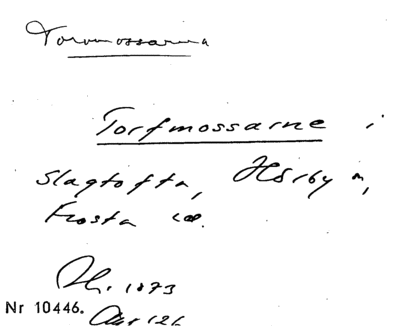 Torvmossarna
Torfmossarne i
Slagtofta, Hörby sn,
Frosta hd.
1873
Nr 10446. Akt 126